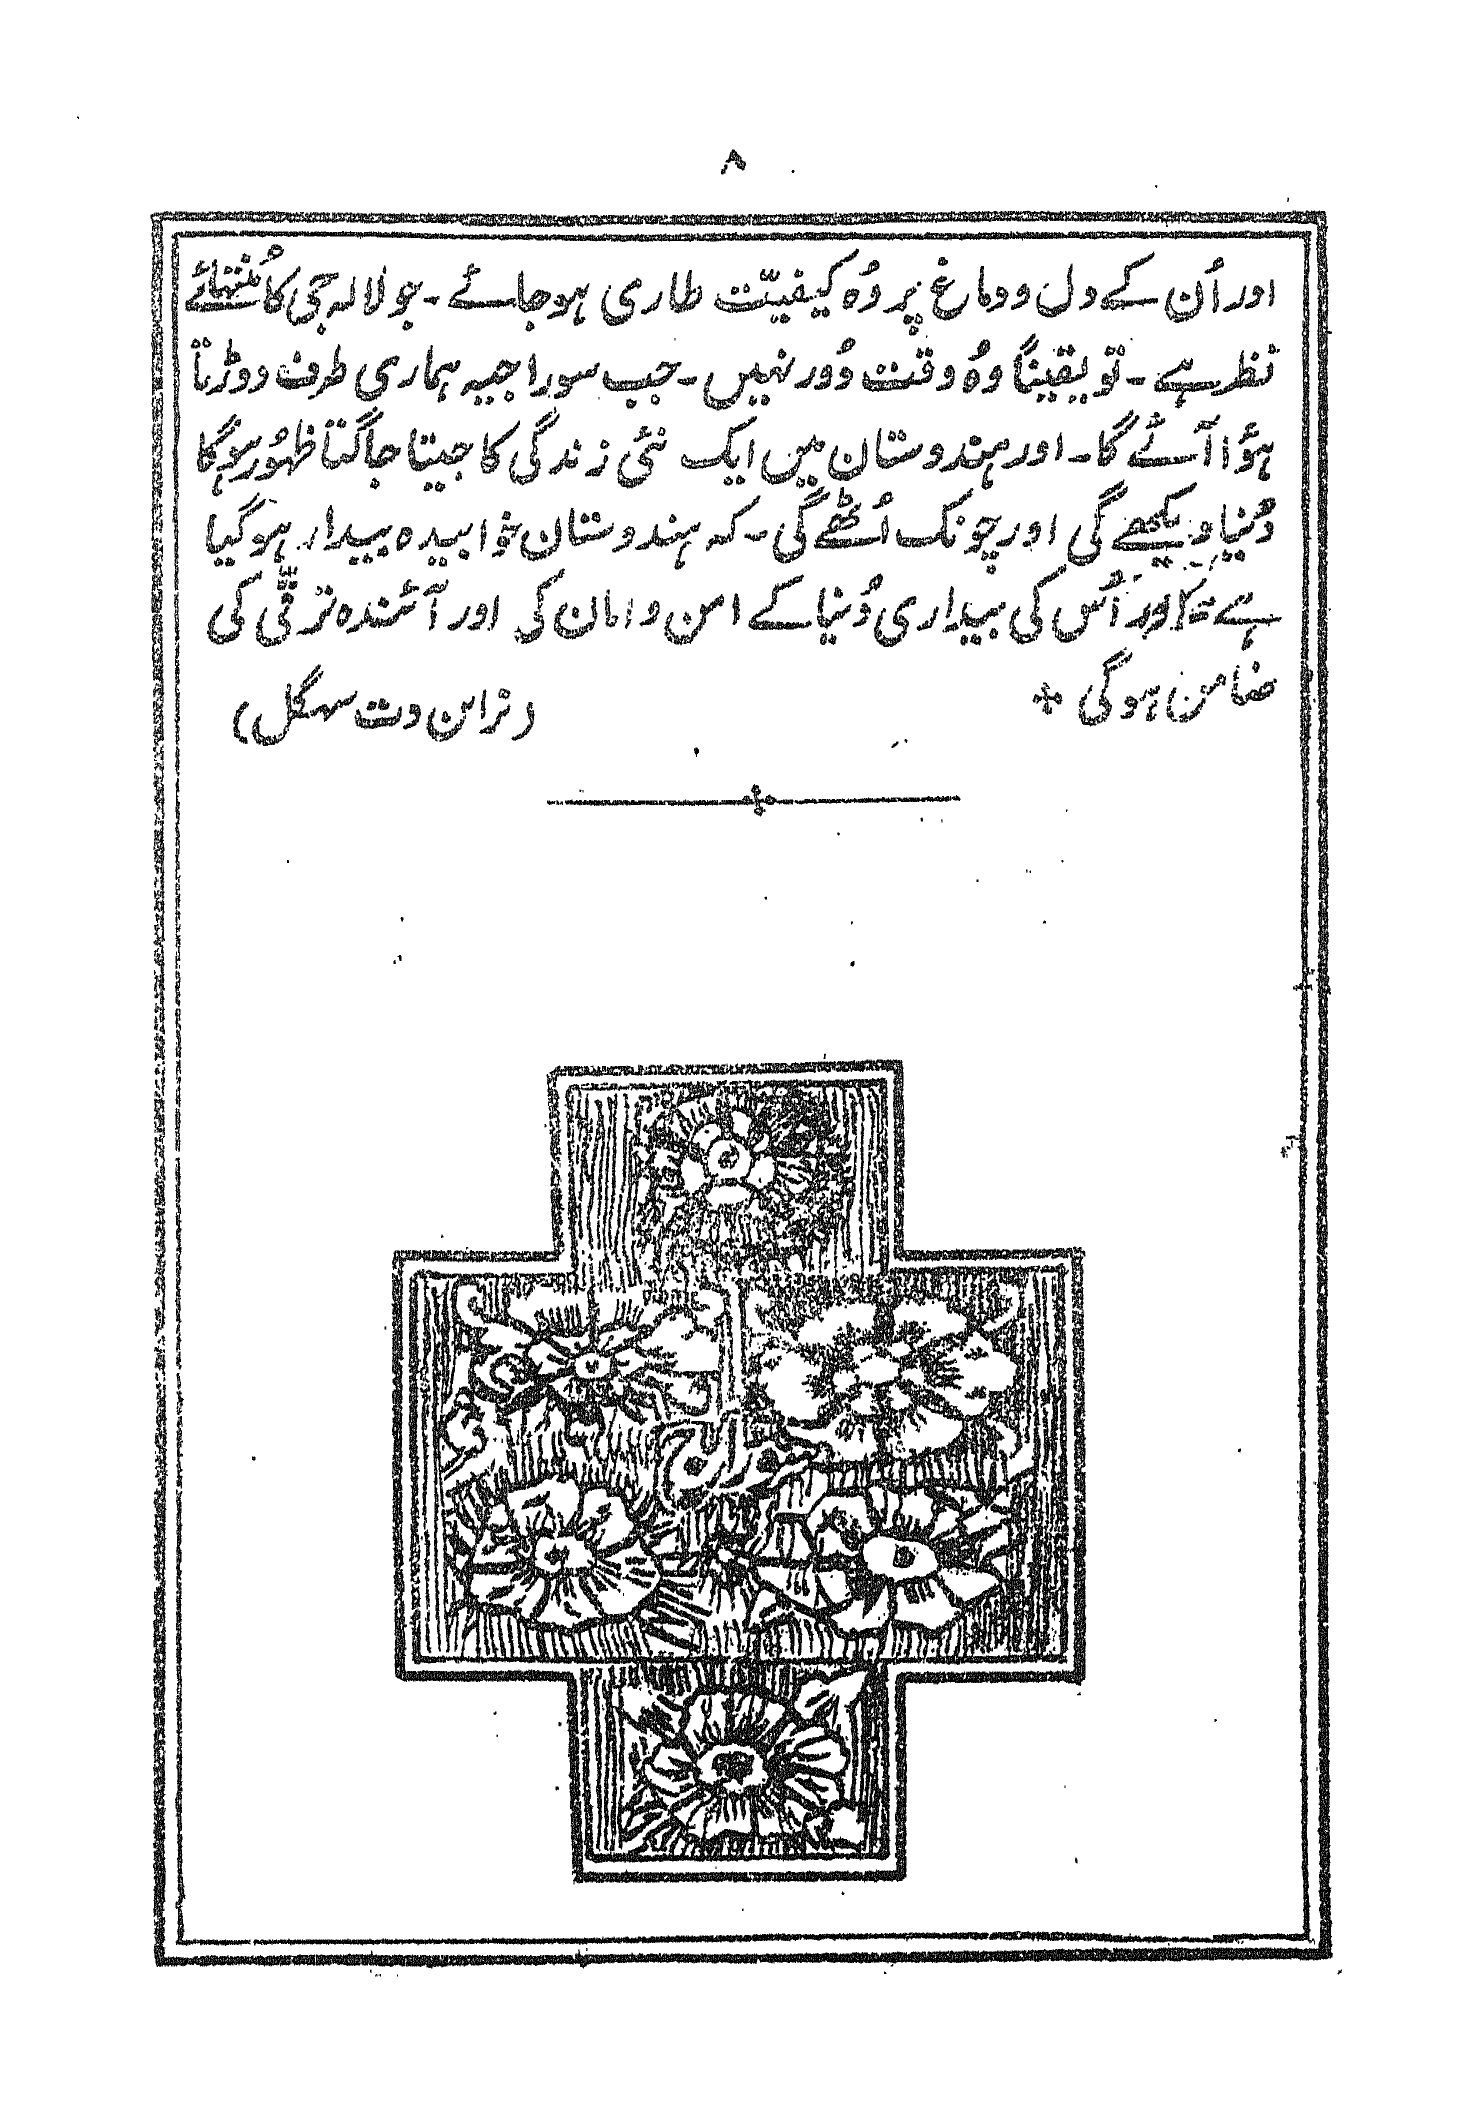 ۸
اور اُن کے دل و دماغ پر وُہ کیفیّت طاری ہو جائے ۔ جو لالہ جی کا مُنتہائے
نظر ہے ۔ تو یقیناً وہُ وقت دُور نہیں ۔ جب سوراجیہ ہماری طرف دوڑتا
ہؤا آئے گا ۔ اور ہندوستان میں ایک نئی زندگی کا جیتا جاگتا ظہُور ہوگا
دُنیا دیکھے گی اور چونک اُٹھے گی ۔ کہ ہندوستان خوابیدہ بیدار ہو گیا
ہے اور اُس کی بیداری دُنیا کے امن و امان کی اور آئندہ ترقّی کی
ضامن ہوگی
(نراین دت سہگل)